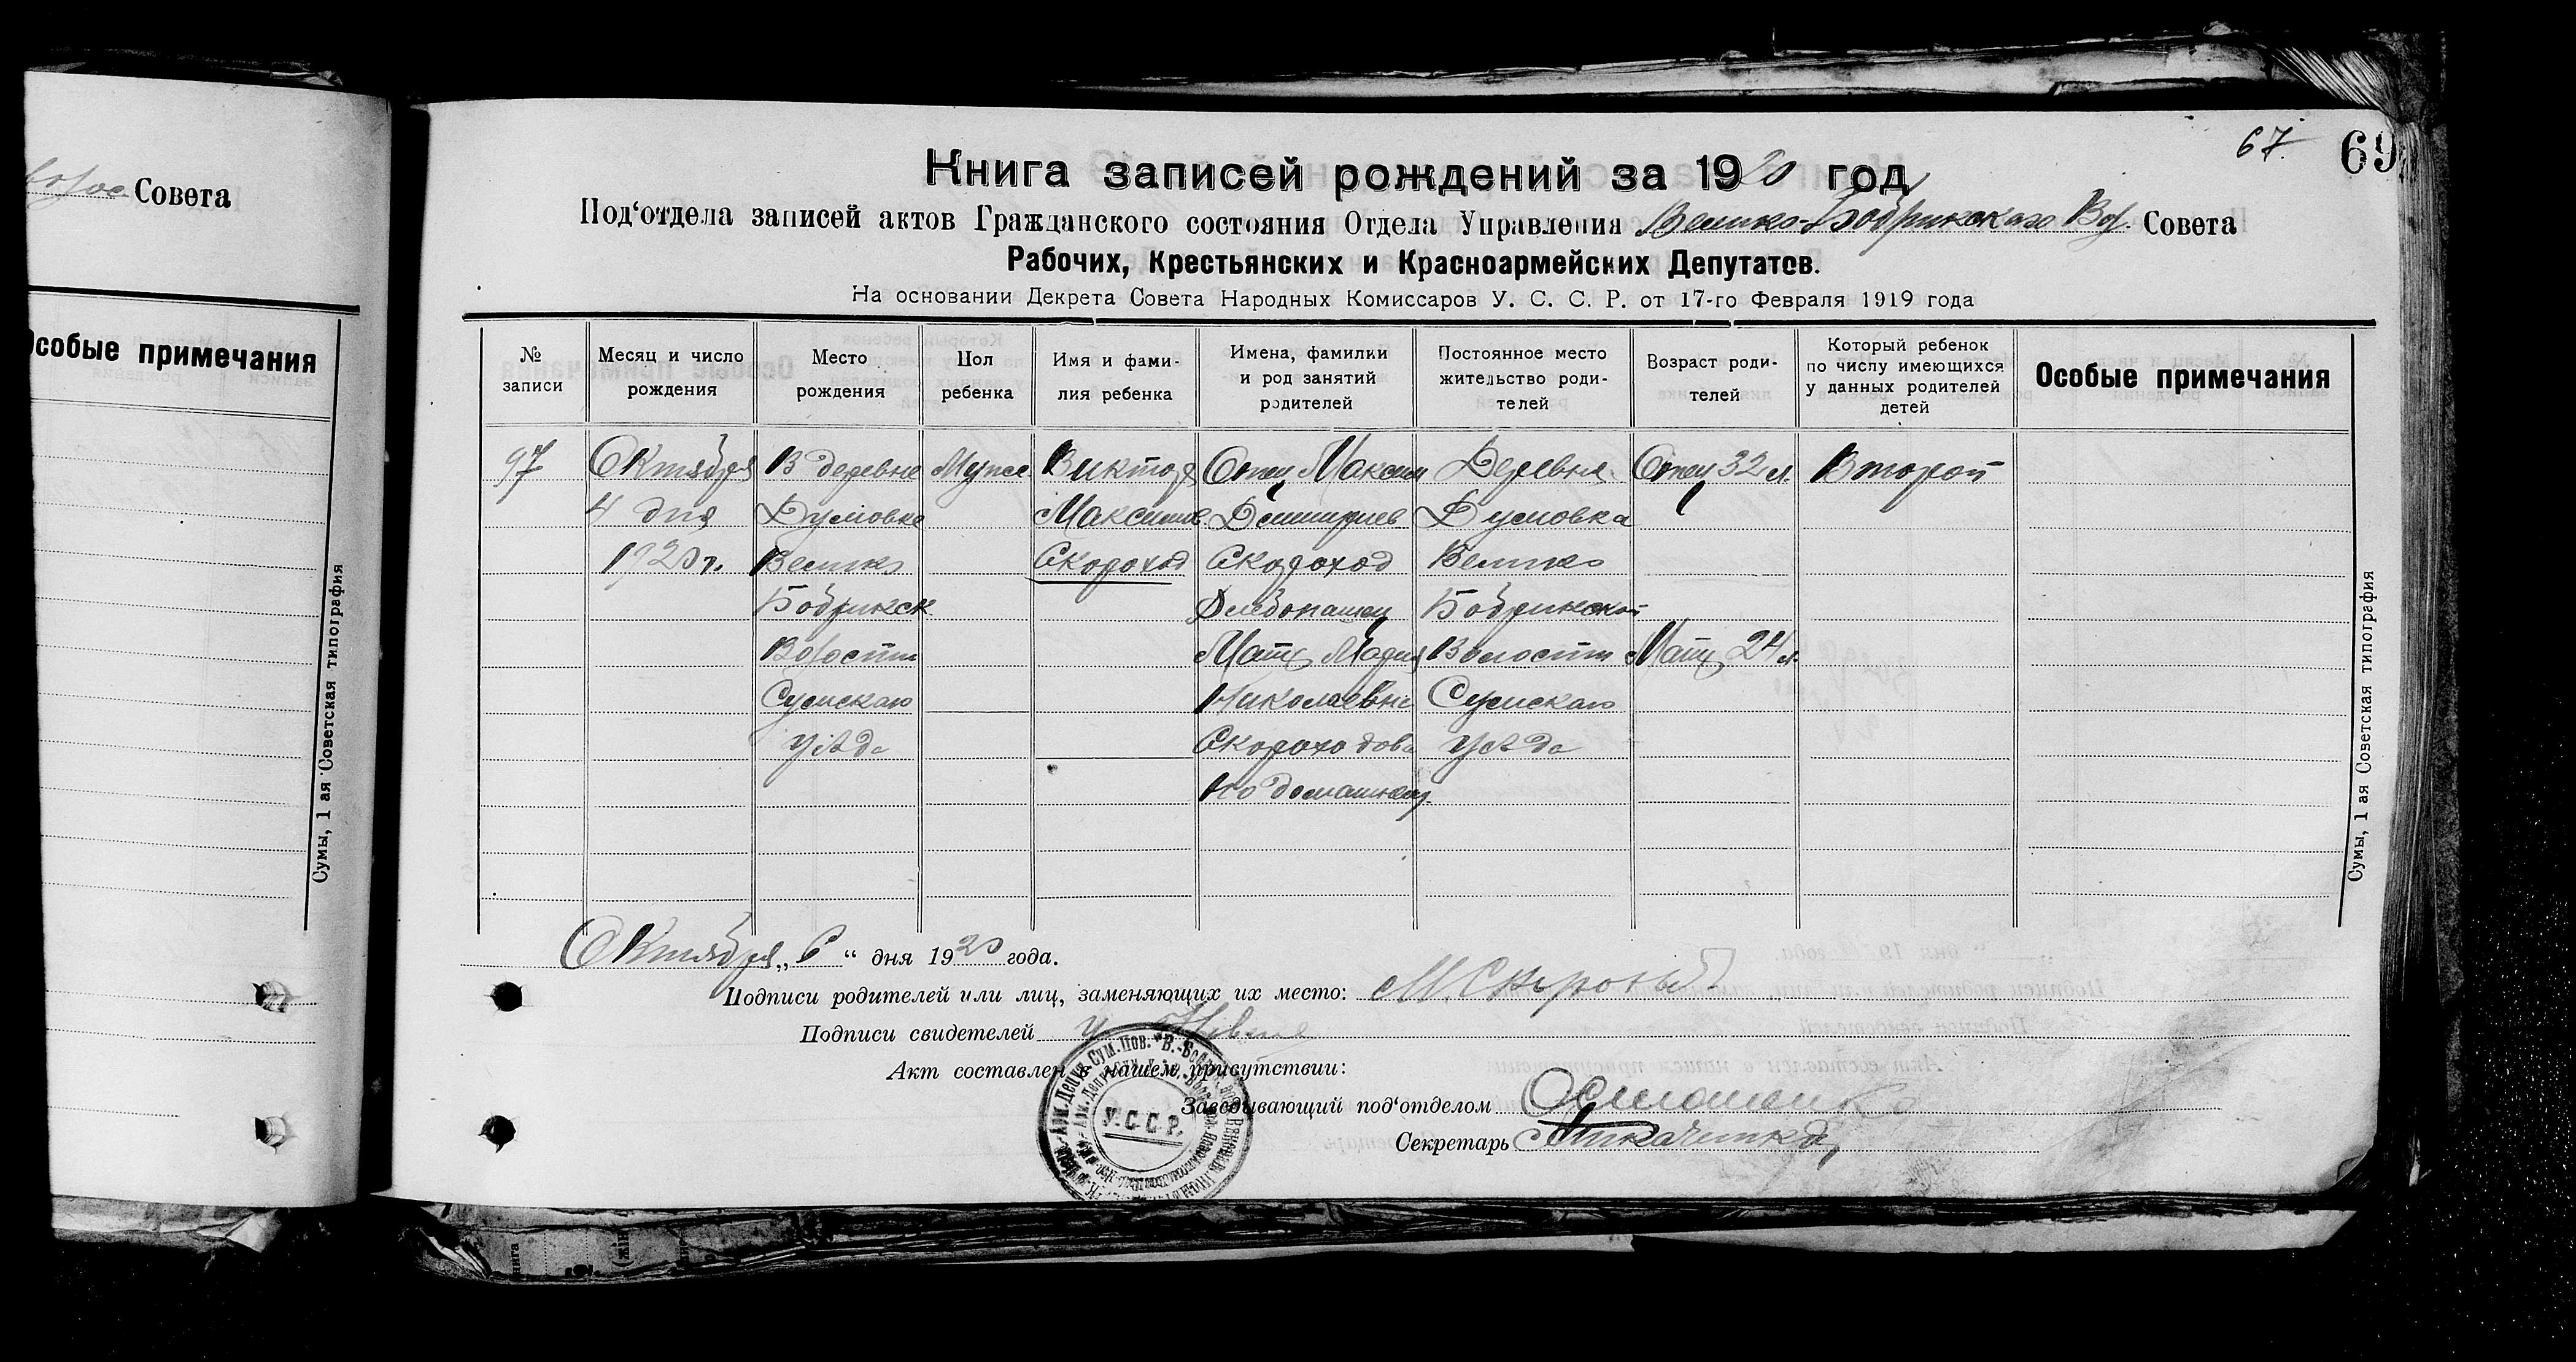 Совета
Особые примечания
Сумы, 1 ая Советская типография
67. 69
Книга записей рождений за 1920 год
Под'отдела записей актов Гражданского состояния Отдела Управления Велико-Бобрикского Вол. Совета
Рабочих, Крестьянских и Красноармейских Депутатов.
На основании Декрета Совета Народных Комиссаров У. С. С. Р. от 17-го Февраля 1919 года
№ записи
Месяц и число рождения
Место рождения
Пол ребенка
Имя и фами-
лия ребенка
Имена, фамилии
и род занятий
родителей
Постоянное место
жительство роди-
телей
Возраст роди-
телей
Который ребенок
по числу имеющихся
у данных родителей
детей
Особые примечания
97
Октября
4 дня
1920 г.
В деревне
Думовке
Велико
Бобрикск
Волости
Сумскаго
Уезда
Мужс.
Виктор
Максимов
Скороход
Отец Максим
Дмитриев
Скороход
Хлебопашец
Мать Мария
Николаевна
Скороходова
по домашнему
Деревня
Думовка
Велико
Бобрикской
Волости
Сумскаго
Уезда
Отец 32 л.
Мать 24 л.
Второй
Октября „ 6 “ дня 1920 года.
Подписи родителей или лиц, заменяющих их место: М. Скороход
Подписи свидетелей
Акт составлен в нашем присутствии:
Заведывающий под'отделом
Секретарь
У.С.С.Р.
Сумы, 1 ая Советская типография